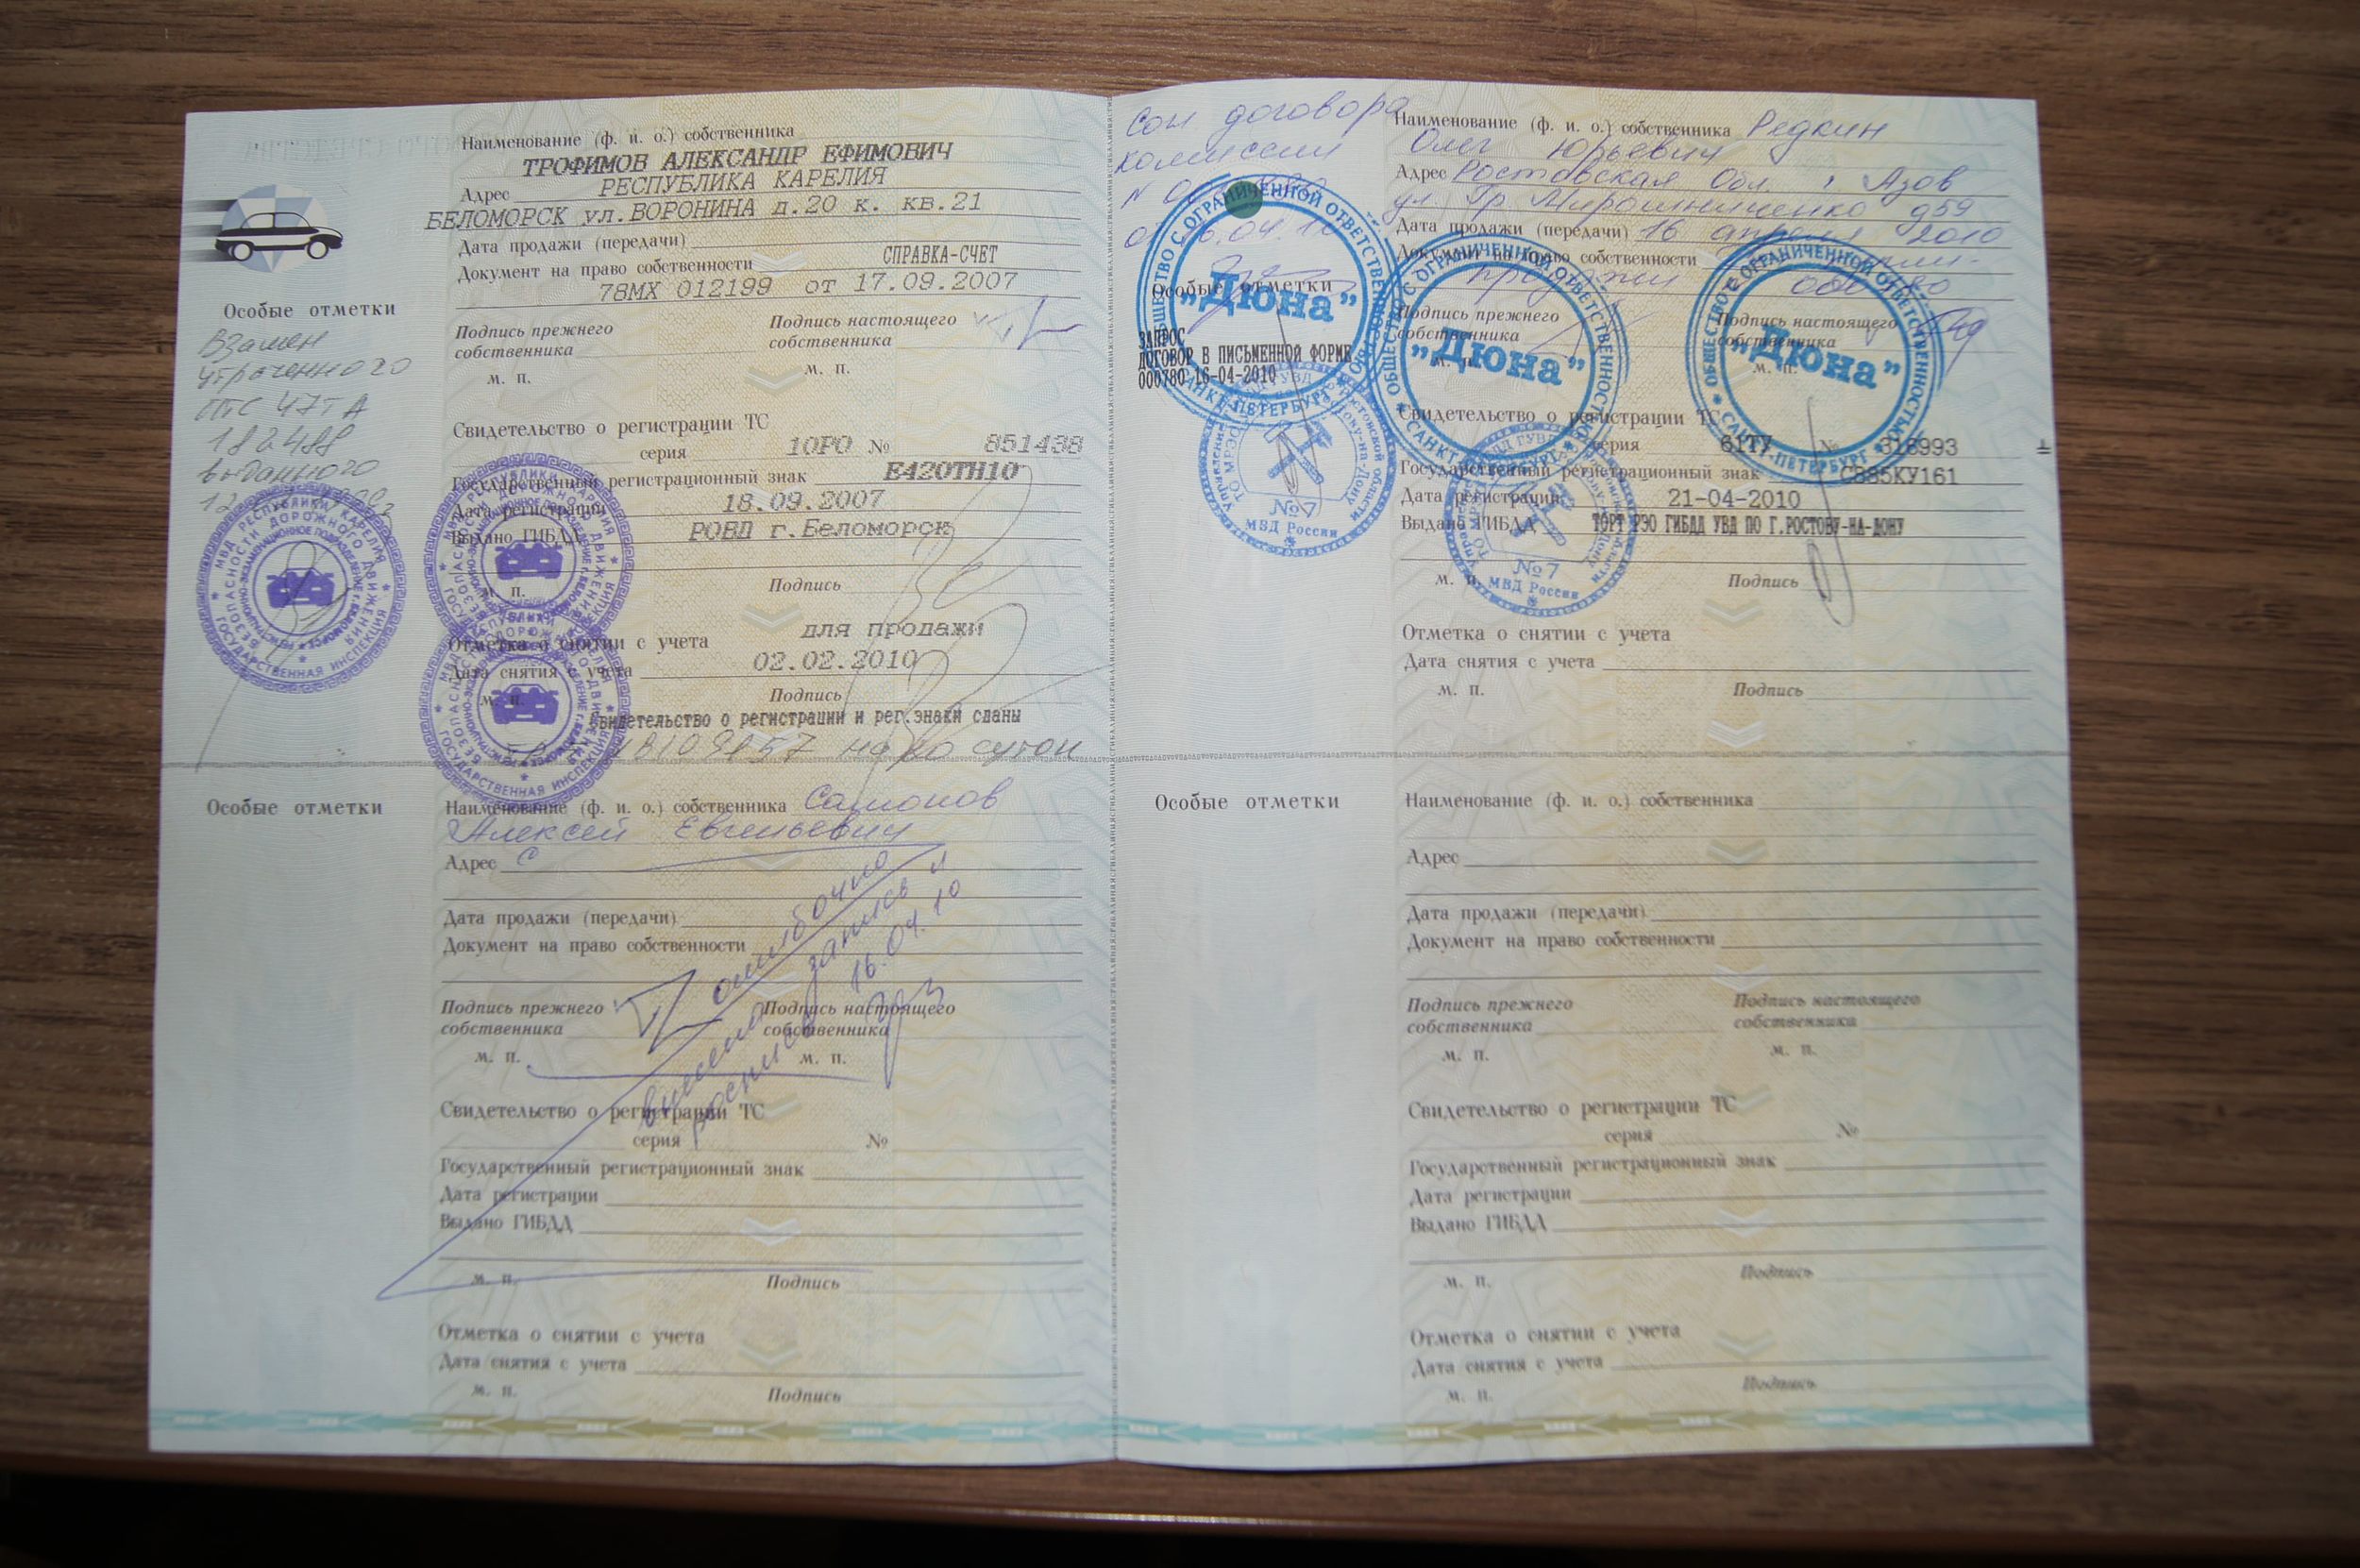 Наименование (ф. и. о.) собственника
ТРОФИМОВ АЛЕКСАНДР ЕФИМОВИЧ
Адрес РЕСПУБЛИКА КАРЕЛИЯ
БЕЛОМОРСК ул.ВОРОНИНА д.20 к. кв.21
Дата продажи (передачи)
Документ на право собственности СПРАВКА-СЧЕТ
78МХ 012199 от 17.09.2007
Подпись прежнего собственника
Подпись настоящего собственника
м. п.
м. п.
Свидетельство о регистрации ТС
серия 10РО № 851438
Государственный регистрационный знак Е420ТН10
Дата регистрации 18.09.2007
Выдано ГИБДД РОВД г.Беломорск
м. п.
Подпись
Отметка о снятии с учета для продажи
Дата снятия с учета 02.02.2010
м. п.
Подпись
Свидетельство о регистрации и рег.знаки сданы
на 20 суток
Особые отметки
Взамен
утраченного
ПТС 47ТА
182488
выданного
МВД РЕСПУБЛИКИ КАРЕЛИЯ
ГОСУДАРСТВЕННАЯ ИНСПЕКЦИЯ
БЕЗОПАСНОСТИ ДОРОЖНОГО ДВИЖЕНИЯ
Особые отметки
Наименование (ф. и. о.) собственника Самонов
Алексей Евгеньевич
Адрес С
Дата продажи (передачи)
Документ на право собственности
ошибочно
внесена запись и
роспись 16.04.10
Подпись прежнего собственника
Подпись настоящего собственника
м. п.
м. п.
Свидетельство о регистрации ТС
серия №
Государственный регистрационный знак
Дата регистрации
Выдано ГИБДД
м. п.
Подпись
Отметка о снятии с учета
Дата снятия с учета
м. п.
Подпись
договора
комиссии
Особые отметки
ЗАПРОС
ДОГОВОР В ПИСЬМЕННОЙ ФОРМЕ
000780 16-04-2010
ОБЩЕСТВО С ОГРАНИЧЕННОЙ ОТВЕТСТВЕННОСТЬЮ
САНКТ-ПЕТЕРБУРГ
"Дюна"
№7
МВД России
Наименование (ф. и. о.) собственника Редкин
Олег Юрьевич
Адрес Ростовская Обл. г Азов
ул. Пр. Мирошниченко д59
Дата продажи (передачи) 16 апреля 2010
Документ на право собственности
продажи
Подпись прежнего собственника
Подпись настоящего собственника
м. п.
м. п.
"Дюна"
"Дюна"
Свидетельство о регистрации ТС
серия 61ТУ № 318993
Государственный регистрационный знак С885КУ161
Дата регистрации 21-04-2010
Выдано ГИБДД ТОРТ РЭО ГИБДД УВД ПО Г.РОСТОВУ-НА-ДОНУ
м. п.
Подпись
№7
МВД России
Отметка о снятии с учета
Дата снятия с учета
м. п.
Подпись
Особые отметки
Наименование (ф. и. о.) собственника
Адрес
Дата продажи (передачи)
Документ на право собственности
Подпись прежнего собственника
Подпись настоящего собственника
м. п.
м. п.
Свидетельство о регистрации ТС
серия №
Государственный регистрационный знак
Дата регистрации
Выдано ГИБДД
м. п.
Подпись
Отметка о снятии с учета
Дата снятия с учета
м. п.
Подпись